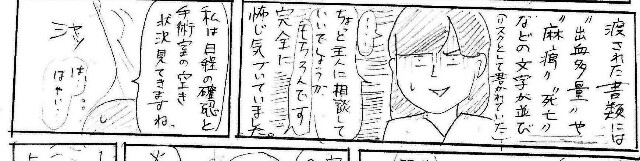 渡された書類には
"出血多量"や
"麻痺""死亡"
などの文字が並び
(リスクとして書かれていた)
…
ちょっと主人に相談して
いいでしょうか
もちろんです
完全に
怖じ気づいていました。
私は日程の確認と
手術室の空き
状況見てきますね
シャッ
はーい…
はやい…